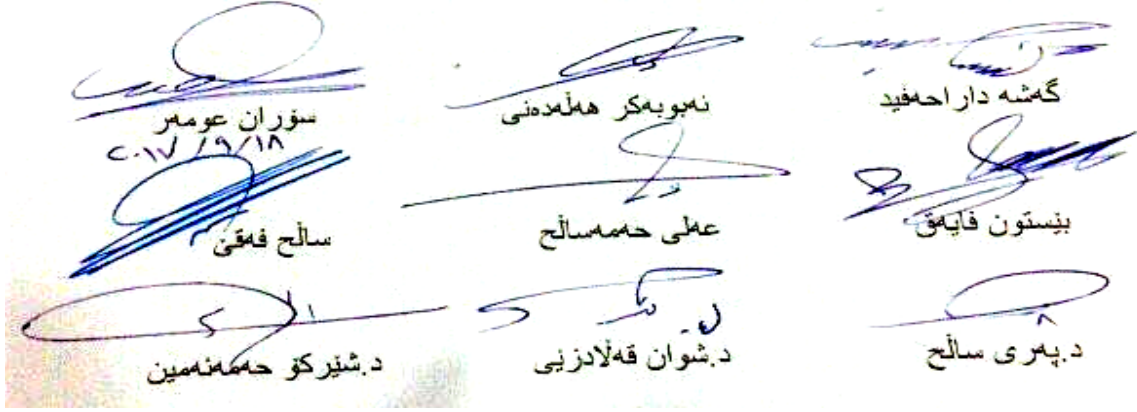 گەشە دارا حەفید ئەبوبەکر هەڵەدنی سۆران عومەر
٢٠١٧/٩/١٨
بێستون فایەق عەلی حەمەساڵح ساڵح فەقێ
د.پەری ساڵح د.شوان قەڵادزێی د.شێرکۆ حەمەئەمین